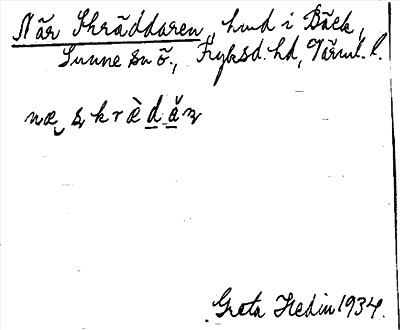 När Skräddaren, hmd i Bäck,
Sunne sn ö., Fryksd. hd, Värml. l.
næ s k r æ̀ d ă n
Greta Hedin 1934.